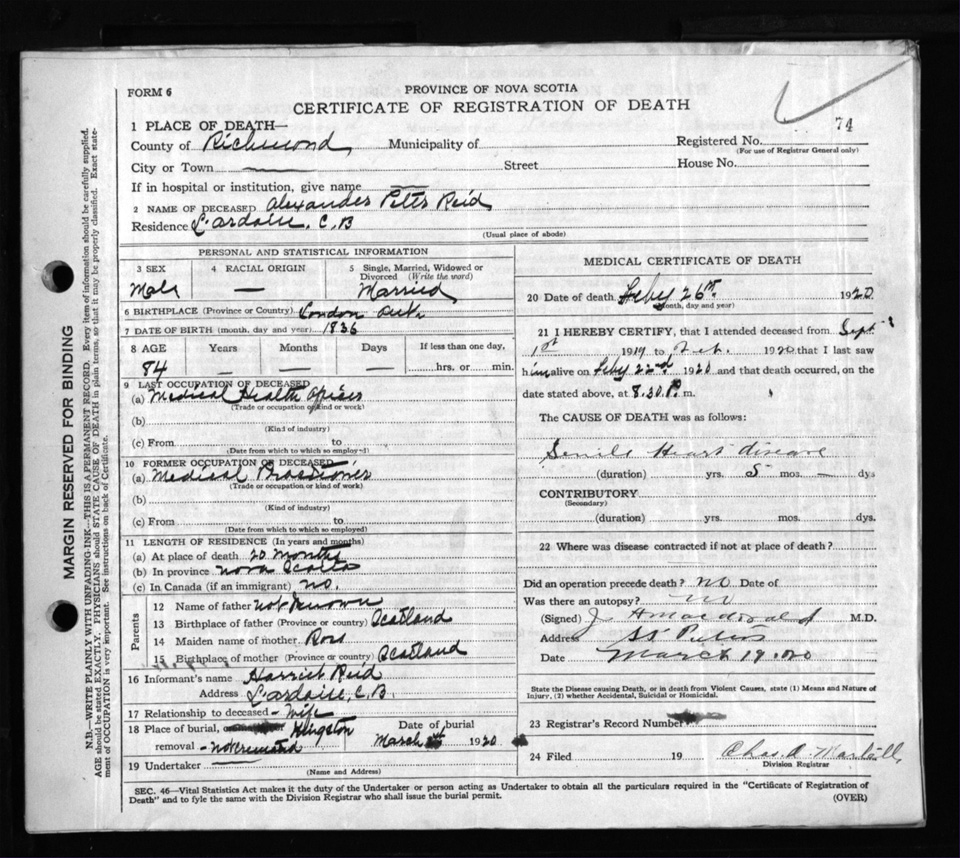 FORM 6
PROVINCE OF NOVA SCOTIA
CERTIFICATE OF REGISTRATION OF DEATH
74
1 PLACE OF DEATH—
County of Richmond Municipality of Registered No.
(For use of Registrar General only)
City or Town Street House No.
If in hospital or institution, give name
2 NAME OF DECEASED Alexander Peter Reid
Residence L'ardoise, C.B
(Usual place of abode)
PERSONAL AND STATISTICAL INFORMATION
3 SEX 4 RACIAL ORIGIN 5 Single, Married, Widowed or Divorced (Write the word)
Male — Married
6 BIRTHPLACE (Province or Country) London Ont.
7 DATE OF BIRTH (month, day and year) 1836
8 AGE Years Months Days If less than one day,
84 — — — hrs. or min.
9 LAST OCCUPATION OF DECEASED
(a) Medical Health Officer
(Trade or occupation or kind of work)
(b)
(Kind of industry)
(c) From to
(Date from which to which so employed)
10 FORMER OCCUPATION OF DECEASED
(a) Medical
(Trade or occupation or kind of work)
(b)
(Kind of industry)
(c) From to
(Date from which to which so employed)
11 LENGTH OF RESIDENCE (In years and months)
(a) At place of death 20 months
(b) In province Nova Scotia
(c) In Canada (if an immigrant) no.
Parents
12 Name of father not known
13 Birthplace of father (Province or country) Scotland
14 Maiden name of mother Ross
15 Birthplace of mother (Province or country) Scotland
16 Informant's name Harriet Reid
Address L'ardoise, C.B.
17 Relationship to deceased - wife
18 Place of burial, Kingston Date of burial
removal - not cremated March 1920
19 Undertaker
(Name and Address)
MEDICAL CERTIFICATE OF DEATH
20 Date of death Feby 26th 1920
(Month, day and year)
21 I HEREBY CERTIFY, that I attended deceased from Sept
1st 1919 to Feb. 1920 that I last saw
him alive on Feby 22nd 1920 and that death occurred, on the
date stated above, at 8.30 P. m.
The CAUSE OF DEATH was as follows:
Senile Heart disease
(duration) yrs. 5 mos. — dys
CONTRIBUTORY
(Secondary)
(duration) yrs. mos. dys.
22 Where was disease contracted if not at place of death?
Did an operation precede death? no Date of
Was there an autopsy? no
(Signed) J H Macdonald M.D.
Address St Peters
Date March 19.20
State the Disease causing Death, or in death from Violent Causes, state (1) Means and Nature of
Injury, (2) whether Accidental, Suicidal or Homicidal.
23 Registrar's Record Number
24 Filed 19 Chas. A.
Division Registrar
SEC. 46—Vital Statistics Act makes it the duty of the Undertaker or person acting as Undertaker to obtain all the particulars required in the "Certificate of Registration of
Death" and to fyle the same with the Division Registrar who shall issue the burial permit.
(OVER)
MARGIN RESERVED FOR BINDING
N.B.—WRITE PLAINLY WITH UNFADING INK—THIS IS A PERMANENT RECORD. Every item of information should be carefully supplied.
AGE should be stated EXACTLY. PHYSICIANS should STATE CAUSE OF DEATH in plain terms, so that it may be properly classified. Exact state-
ment of OCCUPATION is very important. See instructions on back of Certificate.